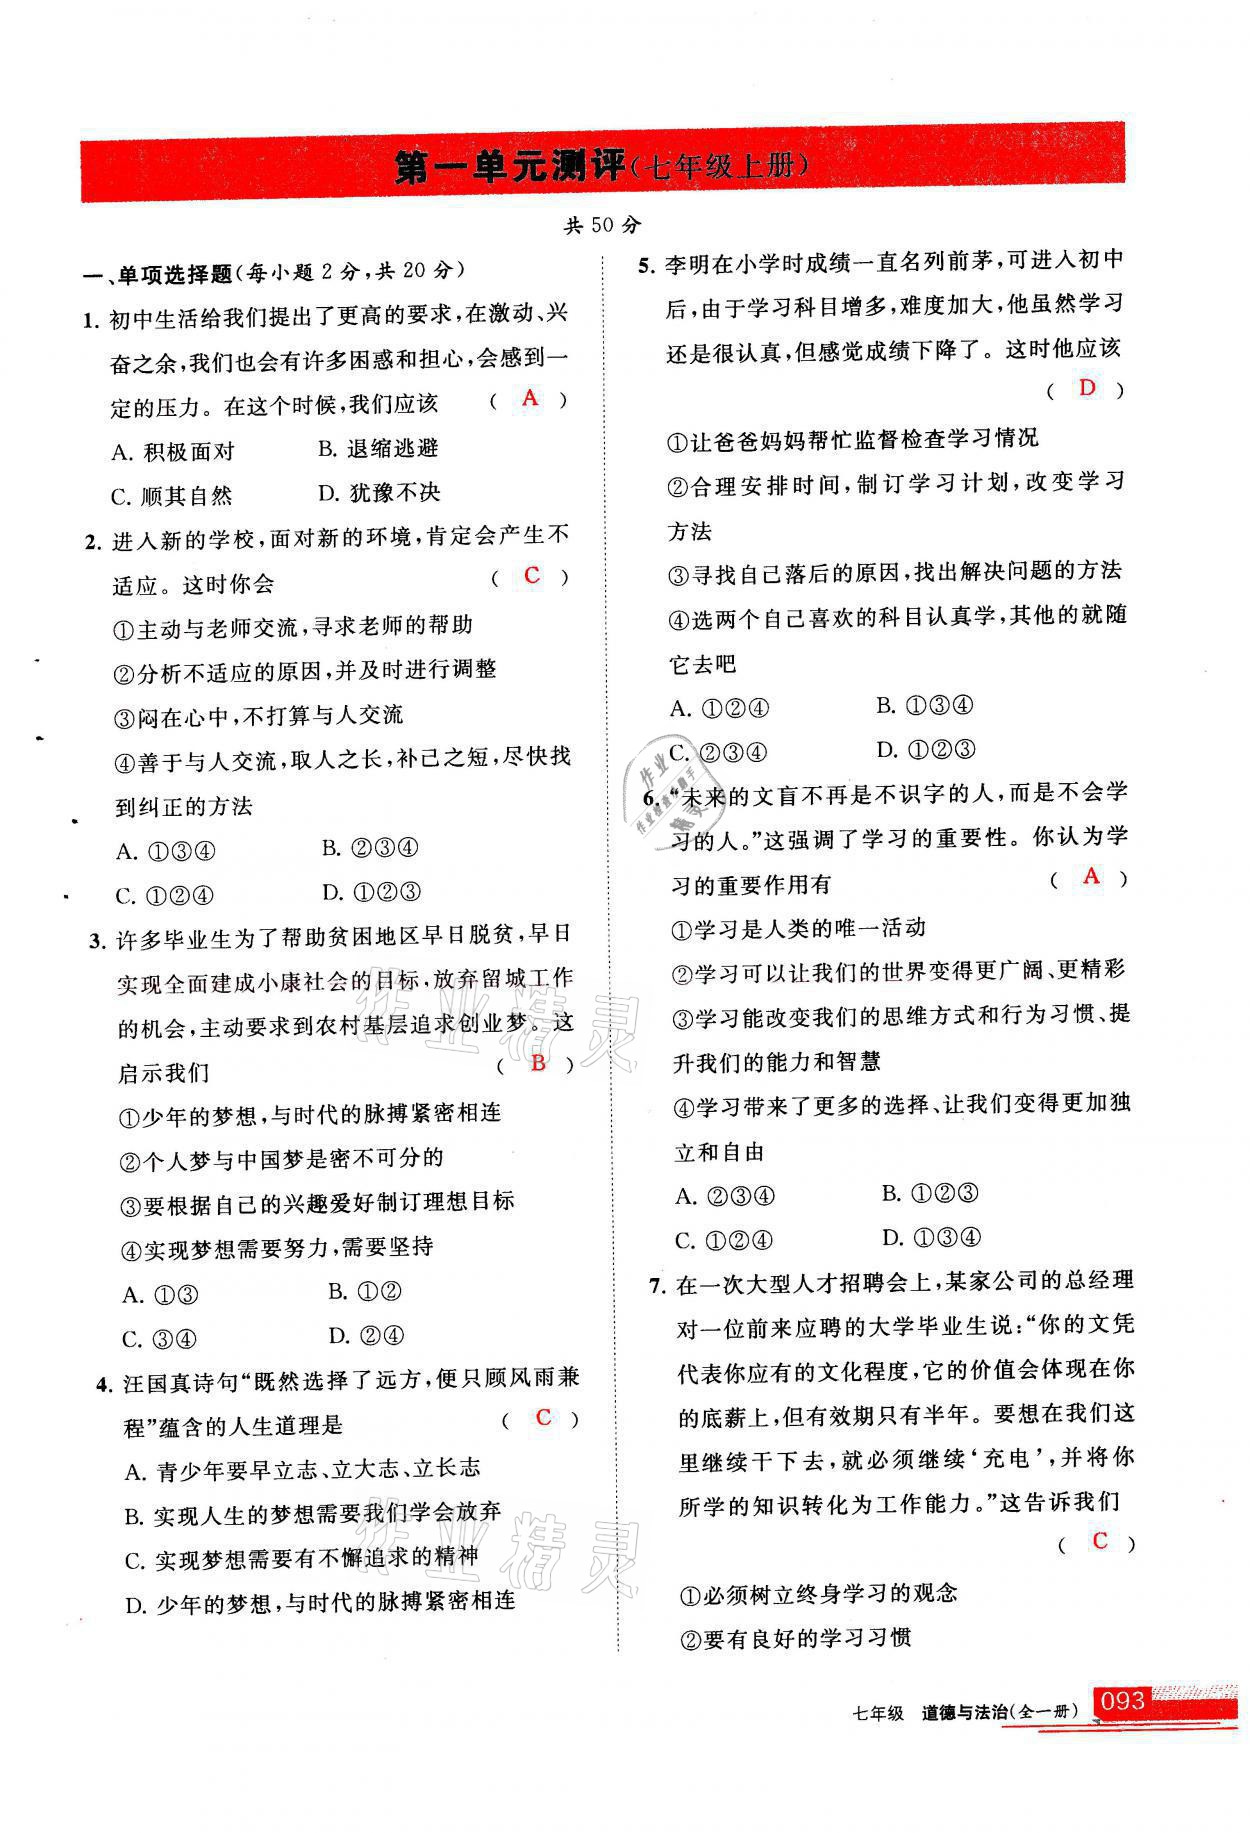 第一单元测评(七年级上册)
共50分
一、单项选择题(每小题2分,共20分)
1. 初中生活给我们提出了更高的要求,在激动、兴
奋之余,我们也会有许多困惑和担心,会感到一
定的压力。在这个时候,我们应该 ( A )
A. 积极面对 B. 退缩逃避
C. 顺其自然 D. 犹豫不决
2. 进入新的学校,面对新的环境,肯定会产生不
适应。这时你会 ( C )
①主动与老师交流,寻求老师的帮助
②分析不适应的原因,并及时进行调整
③闷在心中,不打算与人交流
④善于与人交流,取人之长,补己之短,尽快找
到纠正的方法
A. ①③④ B. ②③④
C. ①②④ D. ①②③
3. 许多毕业生为了帮助贫困地区早日脱贫,早日
实现全面建成小康社会的目标,放弃留城工作
的机会,主动要求到农村基层追求创业梦。这
启示我们 ( B )
①少年的梦想,与时代的脉搏紧密相连
②个人梦与中国梦是密不可分的
③要根据自己的兴趣爱好制订理想目标
④实现梦想需要努力,需要坚持
A. ①③ B. ①②
C. ③④ D. ②④
4. 汪国真诗句“既然选择了远方,便只顾风雨兼
程”蕴含的人生道理是 ( C )
A. 青少年要早立志、立大志、立长志
B. 实现人生的梦想需要我们学会放弃
C. 实现梦想需要有不懈追求的精神
D. 少年的梦想,与时代的脉搏紧密相连
5. 李明在小学时成绩一直名列前茅,可进入初中
后,由于学习科目增多,难度加大,他虽然学习
还是很认真,但感觉成绩下降了。这时他应该
( D )
①让爸爸妈妈帮忙监督检查学习情况
②合理安排时间,制订学习计划,改变学习
方法
③寻找自己落后的原因,找出解决问题的方法
④选两个自己喜欢的科目认真学,其他的就随
它去吧
A. ①②④ B. ①③④
C. ②③④ D. ①②③
6. “未来的文盲不再是不识字的人,而是不会学
习的人。”这强调了学习的重要性。你认为学
习的重要作用有 ( A )
①学习是人类的唯一活动
②学习可以让我们的世界变得更广阔、更精彩
③学习能改变我们的思维方式和行为习惯、提
升我们的能力和智慧
④学习带来了更多的选择、让我们变得更加独
立和自由
A. ②③④ B. ①②③
C. ①②④ D. ①③④
7. 在一次大型人才招聘会上,某家公司的总经理
对一位前来应聘的大学毕业生说:“你的文凭
代表你应有的文化程度,它的价值会体现在你
的底薪上,但有效期只有半年。要想在我们这
里继续干下去,就必须继续‘充电’,并将你
所学的知识转化为工作能力。”这告诉我们
( C )
①必须树立终身学习的观念
②要有良好的学习习惯
七年级 道德与法治(全一册) 093
作业精灵
作业精灵